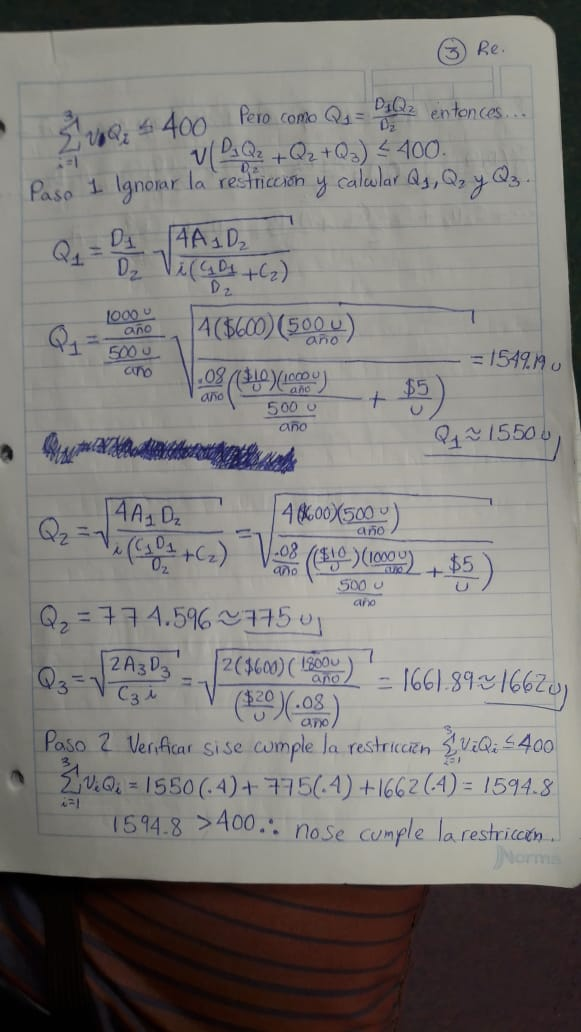 ③ Re.
3 ∑ i=1 viQi ≤ 400 Pero como Q1 = D1Q2/D2 entonces...
V(D1Q2/D2 + Q2 + Q3) ≤ 400.
Paso 1 Ignorar la restricción y calcular Q1, Q2 y Q3.
Q1 = D1/D2 √(4A1D2 / i(C1D1/D2 + C2))
Q1 = (1000 u/año)/(500 u/año) √(4($600)(500 u/año) / .08/año (($10/u)(1000 u/año)/(500 u/año) + $5/u)) = 1549.19 u
Q1 ≈ 1550 u
Q2 = √(4A1D2 / i(C1D1/D2 + C2)) = √(4($600)(500 u/año) / .08/año (($10/u)(1000 u/año)/(500 u/año) + $5/u))
Q2 = 774.596 ≈ 775 u
Q3 = √(2A3D3 / C3 i) = √(2($600)(1800 u/año) / ($20/u)(.08/año)) = 1661.89 ≈ 1662 u
Paso 2 Verificar si se cumple la restricción 3 ∑ i=1 ViQi ≤ 400
3 ∑ i=1 ViQi = 1550(.4) + 775(.4) + 1662(.4) = 1594.8
1594.8 > 400 ∴ no se cumple la restricción.
Norma